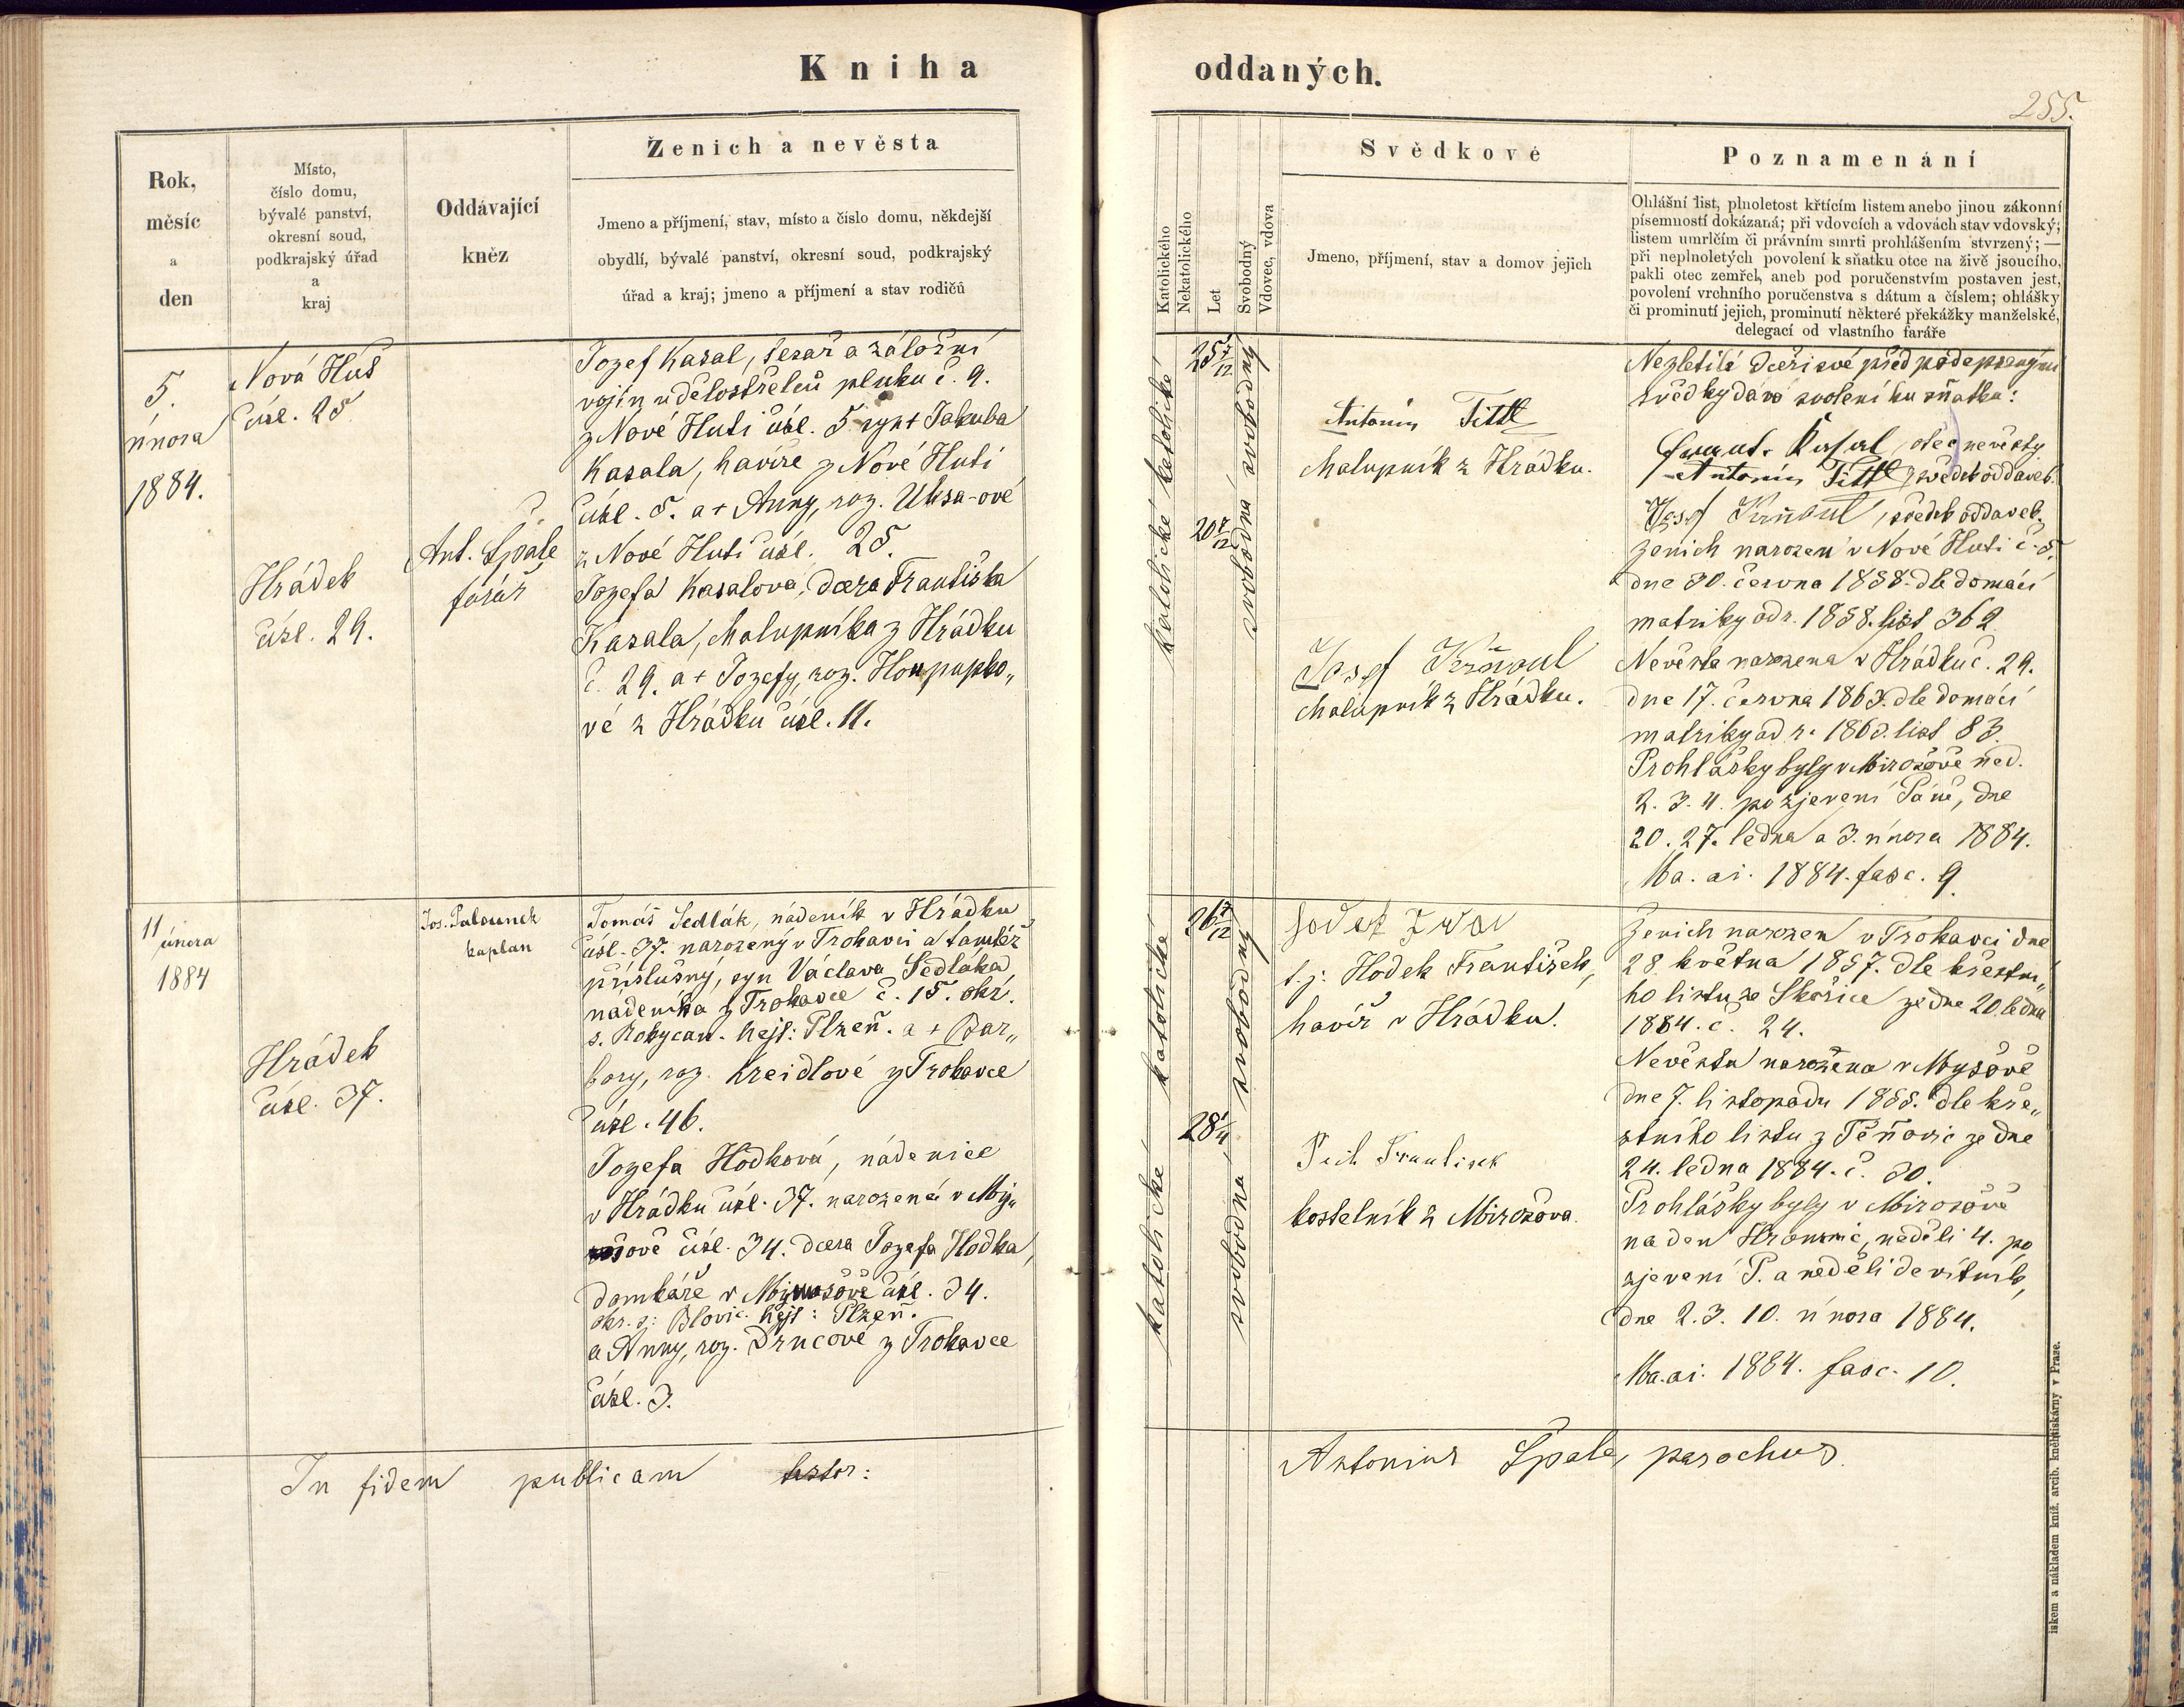 Kniha oddaných.
255.
Rok,
měsíc
a
den
Místo,
číslo domu,
bývalé panství,
okresní soud,
podkrajský úřad
a
kraj
Oddávající
kněz
Ženich a nevěsta
Jmeno a příjmení, stav, místo a číslo domu, někdejší
obydlí, bývalé panství, okresní soud, podkrajský
úřad a kraj; jmeno a příjmení a stav rodičů
Katolického
Nekatolického
Let
Svobodný
Vdovec, vdova
Svědkové
Jmeno, příjmení, stav a domov jejich
Poznamenání
Ohlášní list, plnoletost křticím listem anebo jinou zákonní
písemností dokázaná; při vdovcích a vdovách stav vdovský;
listem umrlčím či právním smrti prohlášením stvrzený; —
při neplnoletých povolení k sňatku otce na živě jsoucího,
pakli otec zemřel, aneb pod poručenstvím postaven jest,
povolení vrchního poručenstva s dátum a číslem; ohlášky
či prominutí jejich, prominutí některé překážky manželské,
delegací od vlastního faráře
5.
února
1884.
Nová Huť
čísl. 25
Hrádek
čísl. 29.
Ant. Špale
farář
Jozef Kasal, tesař a záložní
vojín u dělostřelců pluku č. 9.
z Nové Huti čísl. 5 syn + Jakuba
Kasala, havíře z Nové Huti
čísl. 5. a + Anny, roz. Uksa-ové
z Nové Huti čísl. 25.
Jozefa Kasalova, dcera Františka
Kasala, chalupníka z Hrádku
č. 29. a + Jozefy, roz. Houpapko„
vé z Hrádku čísl. 11.
katolické
katolické
25 7/12
20 7/12
svobodný
svobodná
Antonín Tittl
chalupník z Hrádku.
Josef
chalupník z Hrádku.
Nezletilé dceři své před podepsanými
svědky dává svolení ku sňatku:
Kasal, otec nevěsty
Antonín Tittl, svědek oddaveb.
Josef, svědek oddaveb.
Ženich narozen v Nové Huti č. 5.
dne 30. června 1858. dle domácí
matriky od r. 1858. list 362
Nevěsta narozena v Hrádku č. 29.
dne 17. června 1863. dle domácí
matriky od r. 1863. list 83.
Prohlášky byly v Mirošově ned.
2. 3. 4. po zjevení Páně, dne
20. 27. ledna a 3. února 1884.
Ma. ai. 1884. fasc. 9.
11 února
1884
Hrádek
čísl. 37.
Jos. Palounek
kaplan
Tomáš Sedlák, nádeník v Hrádku
čísl. 37. narozený v Trokavci a tamtéž
příslušný, syn Václava Sedláka,
nádeníka z Trokavce č. 15. okr.
s. Rokycan. hejt: Plzeň. a + Bar„
bory, roz. Kreidlové z Trokavce
čísl. 46.
Jozefa Hodková, nádenice
v Hrádku čísl. 37. narozená v My„
šově čísl. 34. dcera Jozefa Hodka,
domkáře v Myšově čísl. 34.
okr. s: Blovic. hejt: Plzeň.
a Anny, roz. Drncové z Trokavce
čísl. 3.
katolické
katolické
26 7/12
28 1/4
svobodný
svobodná
t. j: Hodek František,
havíř v Hrádku.
František
kostelník z Mirošova.
Ženich narozen v Trokavci dne
28. května 1857. dle křestní„
ho listu ze Skořice ze dne 20. ledna
1884. č. 24.
Nevěsta narozena v Myšově
dne 7. listopadu 1855. dle kře„
stního listu z Těňovic ze dne
24. ledna 1884. č. 30.
Prohlášky byly v Mirošově
na den Hromnic, neděli 4. po
zjevení P. a neděli devítník,
dne 2. 3. 10. února 1884.
Ma. ai. 1884. fasc. 10.
In fidem publicam testor: Antonius Špale, parochus.
iskem a nákladem kníž. arcib. knihtiskárny v Praze.